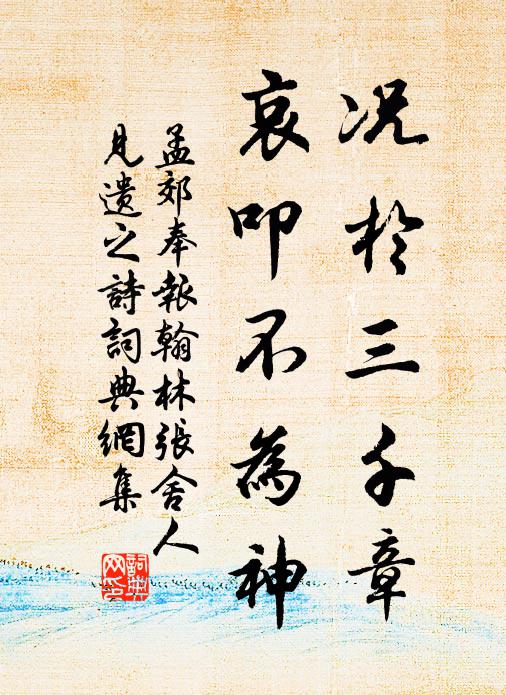 况於三千章
哀叩不為神
孟郊奉報翰林張舍人
見遺之詩詞典網集
詞典網印